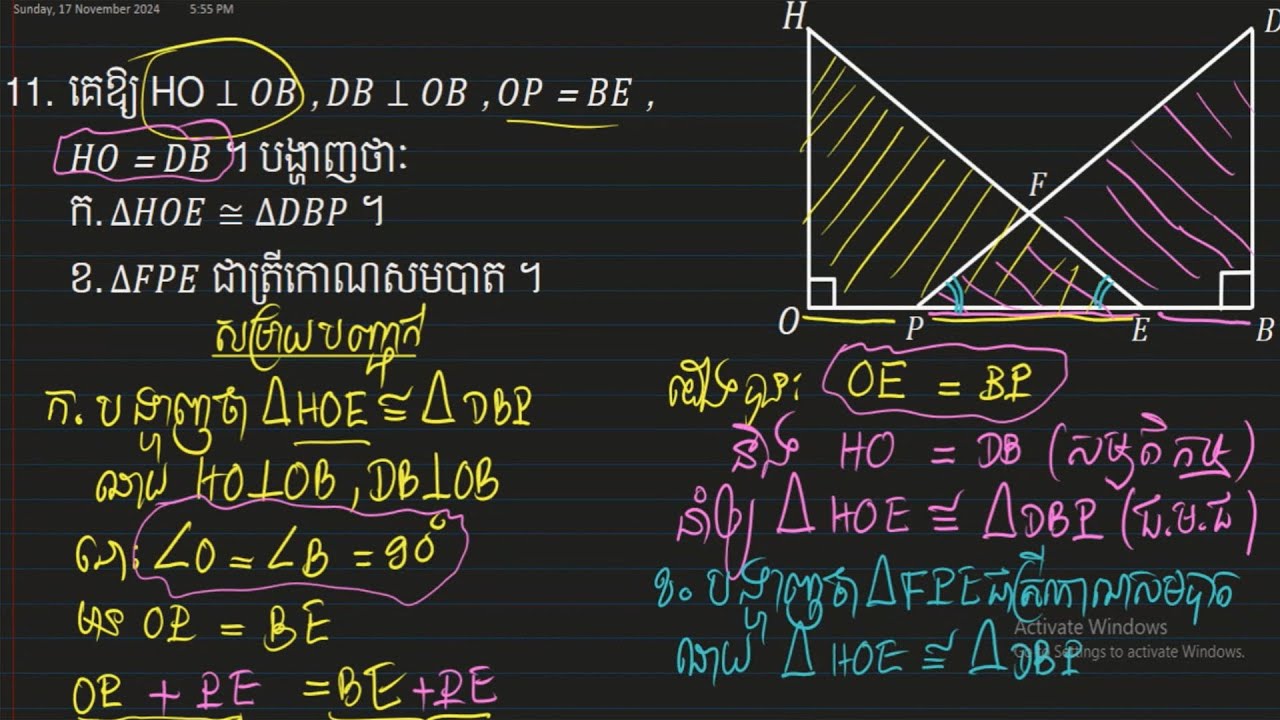 Sunday, 17 November 2024 5:55 PM
11. គេឱ្យ HO ⊥ OB , DB ⊥ OB , OP = BE ,
HO = DB ។ បង្ហាញថា:
ក. ΔHOE ≅ ΔDBP ។
ខ. ΔFPE ជាត្រីកោណសមបាត ។
សម្រាយបញ្ជាក់
ក. បង្ហាញថា Δ HOE ≅ Δ DBP
ដោយ HO⊥OB , DB⊥OB
នោះ ∠O = ∠B = ៩០°
មាន OP = BE
OP + PE = BE + PE
H
D
F
O
P
E
B
យើងបាន: OE = BP
និង HO = DB (សម្មតិកម្ម)
នាំឲ្យ Δ HOE ≅ Δ DBP (ជ.ម.ជ)
ខ. បង្ហាញថា Δ FPE ជាត្រីកោណសមបាត
ដោយ Δ HOE ≅ Δ DBP
Activate Windows
Go to Settings to activate Windows.